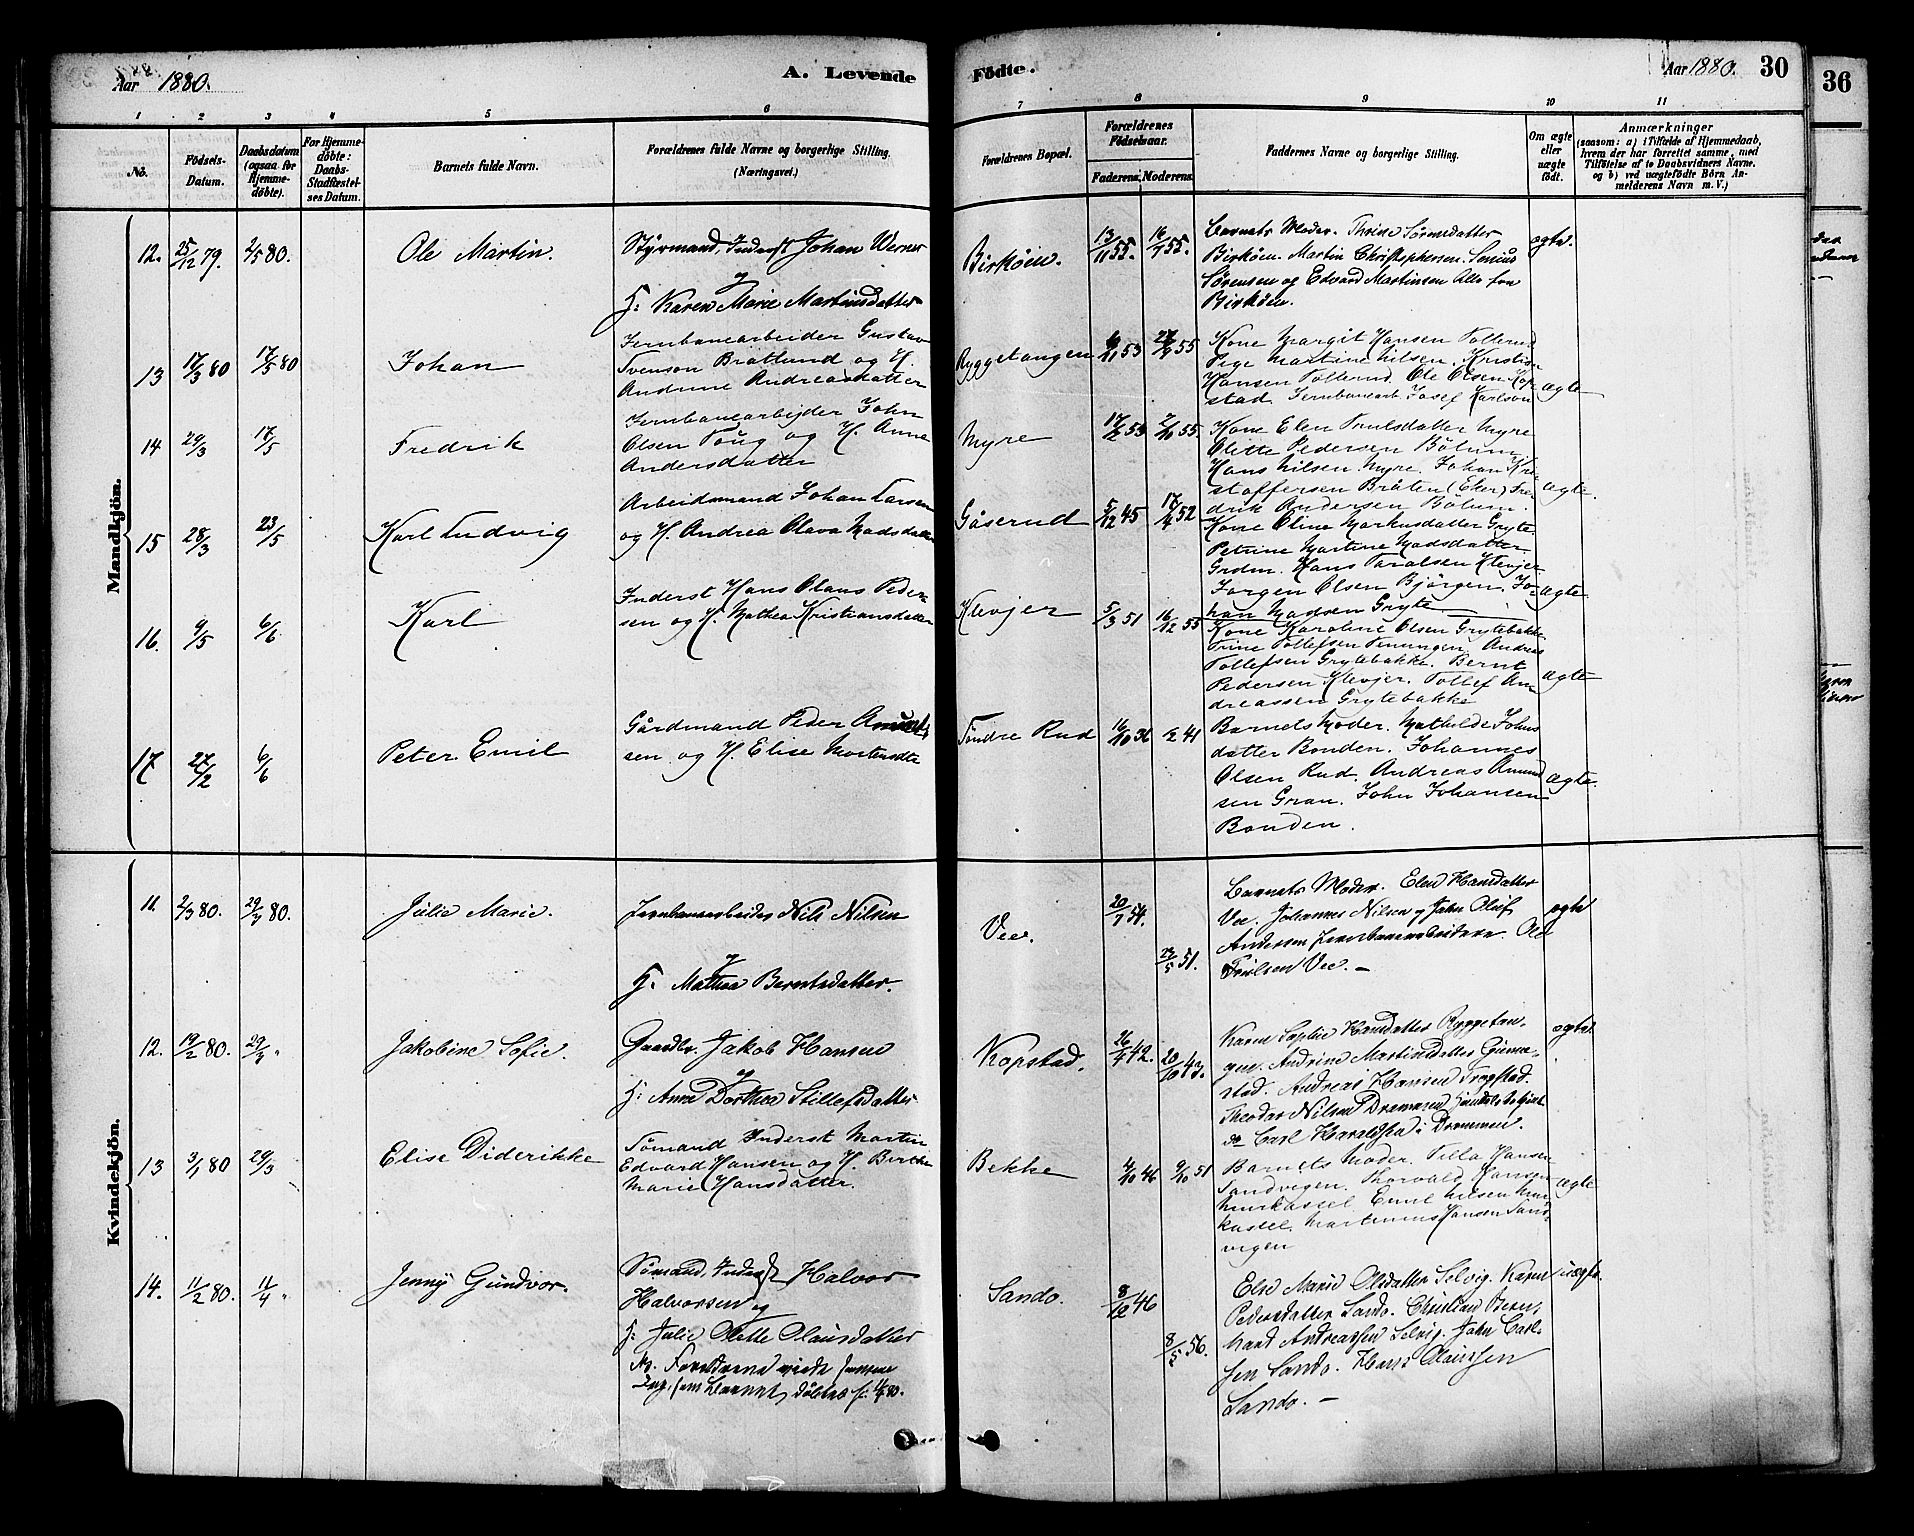 Aar 1880.
A. Levende
Födte.
Aar 1880.
30
36
1 2 3 4 5 6 7 8 9 10 11
No.
Födsels-Datum.
Daabsdatum (ogsaa for Hjemmedöbte).
For Hjemmedöbte: Daabs-Stadfæstelses Datum.
Barnets fulde Navn.
Forældrenes fulde Navne og borgerlige Stilling. (Næringsvei.)
Forældrenes Bopæl.
Forældrenes Födselsaar.
Faderens. Moderens.
Faddernes Navne og borgerlige Stilling.
Om ægte eller uægte födt.
Anmærkninger
(saasom: a) i Tilfælde af Hjemmedaab, hvem der har forrettet samme, med Tilföielse af to Daabsvidners Navne, og b) ved uægtefödte Börn Anmelderens Navn m. V.)
Mandkjön.
12. 25/12 79. 2/5 80. Ole Martin.
Styrmand, Inderst Johan Werner
g
H: Karen Marie Martinsdatter
Birköen. 13/11 55. 16/7 55.
Barnets Moder. Thrine Sörensdatter
Birköen. Martin Christophersen.
Sörensen og Edvard Martinsen Alle fra
Birköen.
ægte.
13 17/3 80 17/5 80 Johan
Jernbanearbeider Gustav
Svenson Bratlund og H.
Andrine Andreasdatter
Ryggetangen 6/11 53 27/9 55
Kone Margit Hansen Tollerud
Pige Martine Nilsen. Kristian
Hansen Tollerud. Ole Olsen Kop
stad. Jernbanearb. Josef Karlson
ægte
14 29/3 17/5 Fredrik
Jernbanearbejder John
Olsen Toug og H. Anne
Andersdatter
Myre 17/12 53 7/10 55
Kone Elen Trulsdatter Myre
Olette Pedersen Bölum
Hans Nilsen Myre. Johan Kri
stoffersen Bråten (Eker) Fre
drik Andersen Bölum.
ægte
15 28/3 23/5 Karl Ludvig
Arbeidsmand Johan Larsen
og H. Andrea Olava Madsdatter
Gåserud 5/12 45 17/4 52
Kone Oline Markusdatter Gryte
Petrine Martine Madsdatter
Grdm. Hans Taralsen Klevjer
Jørgen Olsen Bjørgen. Jo-
han Madsen Gryte
ægte
16. 9/5 6/6 Karl
Inderst Hans Olaus Peder
sen og H. Mathea Kristiansdatter
Klevjer 5/3 51 16/12 55
Kone Karoline Olsen Grytebakke
Trine Tollefsen Tenungen. Andreas
Tollefsen Grytebakke. Bernt
Pedersen Klevjer. Tollef An
dreassen Grytebakke
ægte
17 27/2 6/6 Peter Emil
Gårdmand Peder Amund
sen og H. Elise Mortensdtr
Søndre Rud 16/10 36 41
Barnets Moder. Mathilde Johns
datter Bonden. Johannes
Olsen Rud. Andreas Amund
sen Gran. John Johansen
Bonden.
ægte
Kvindekjön.
11. 2/3 80. 29/3 80. Julie Marie.
Jernbanearbeider Nils Nilsen
g
H. Mathea Berntsdatter.
Vee. 20/7 54. 23/5 51.
Barnets Moder. Elen Hansdatter
Vee. Johannes Nilsen g John Oluf
Andersen Jernbanearbeidere. Ole
Trulsen Vee. –
ægte
12. 19/2 80. 29/3 " Jakobine Sofie.
Gaardbr. Jakob Hansen
g
H: Anne Dorthea Stillefsdatter
Kopstad. 26/4 42. 20/10 43.
Karen Sophie Hansdatter Ryggetan-
gen. Andrine Martinsdatter
stad. Andreas Hansen Trogstad.
Theodor Nilsen Drammen
Carl Haraldsen i Drammen.
ægte.
13 3/1 80 29/3 Elise Diderikke
Sømand Inderst Martin
Edvard Hansen og H. Berthe
Marie Hansdatter.
Bekke 4/10 46 9/10 51
Barnets Moder. Tilla Hansen
Sandvigen. Thorvald Hansen
Murkastel. Emil Nilsen Mur
kastel. Martinius Hansen Sand-
vigen
ægte
14. 11/2 80. 11/4 " Jenny Gundvor.
Sømand, Inderst Halvor
Halvorsen g
H: Julie Olette Olausdatter
Nb. Forældrene viede samme
Dag, som Barnet døbtes s: 11/4 80.
Sando. 8/12 46 8/5 56.
Else Marie Olsdatter Selvig. Karen
Pedersdatter Sando. Christian Bern-
hard Andreassen Selvig. John Carl-
sen Sando. Hans Olausen
Sando. –
uægte.